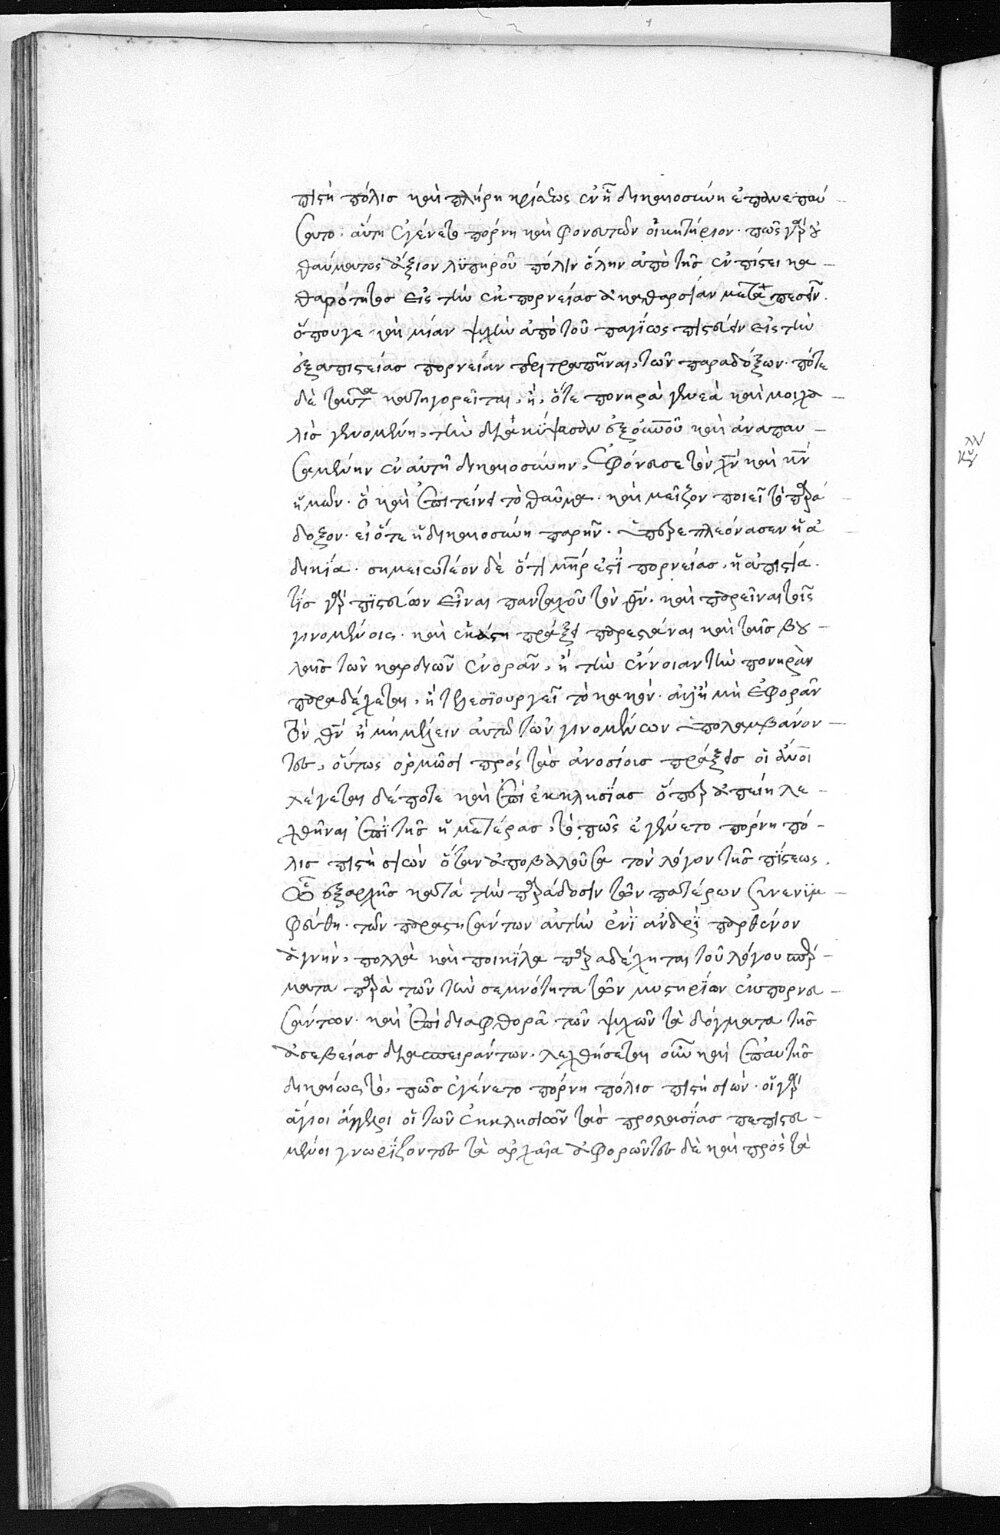 πιστὴ πόλις καὶ πλήρη κρίσεως ἐν ᾗ δικαιοσύνη ἐπανεπαύ
σατο. αὕτη ἐγένετο πόρνη καὶ φονευτῶν οἰκητήριον. πῶς γὰρ οὐ
θαύματος ἄξιον λϋπηροῦ πόλιν ὅλην ἀπὸ τῆς ἐν πίστει κα
θαρότητος εἰς τὴν ἐκ πορνείας ἀκαθαρσίαν μεταπεσεῖν.
ὅπουγε καὶ μίαν ψυχὴν ἀπὸ τοῦ παγίως πιστεύειν εἰς τὴν
ἐξ ἀπιστείας πορνείαν περιτραπῆναι, τῶν παραδόξων. πότε
δὲ ταῦτα κατηγορεῖται, ἢ, ὅτε πονηρὰ γενεὰ καὶ μοιχα
λὶς γενομένη, τὴν διακύψασαν ἐξ οὐνοῦ καὶ ἀναπαυ
σαμένην ἐν αὐτῇ δικαιοσύνην, ἐφόνευσε τὸν χν καὶ κν
ἡμῶν. ὃ καὶ ἐπιτείνει τὸ θαῦμα. καὶ μεῖζον ποιεῖ τὸ παρά
δοξον. εἰ ὅτε ἡ δικαιοσύνη παρῆν. ὑπερεπλεόνασεν ἡ ἀ
δικία. σημειωτέον δὲ ὅτι μηρ ἐστὶ πορνείας, ἡ ἀπιστία.
τίς γὰρ πιστεύων εἶναι πανταχοῦ τὸν θν. καὶ παρεῖναι τοῖς
γινομένοις. καὶ ἑκάστη πράξει παρεστάναι καὶ ταῖς βου
λαῖς τῶν καρδιῶν ἐνορᾶν, ἢ τὴν ἔννοιαν τὴν πονηρὰν
παραδέχεται, ἢ τελεσϊουργεῖ τὸ κακόν. ἀλλὴ μὴ ἐφορᾶν
τὸν θν ἢ μὴ μέλειν αὐτῶ τῶν γινομένων ὑπολαμβάνον
τες, οὕτως ὁρμῶσι πρὸς τὰς ἀνοσίοις πράξεις οἱ ἄνοι
λέγεται δέ ποτε καὶ ἐπὶ ἐκκλησίας ὅπερ ἀπείη λε
χθῆναι ἐπὶ τῆς ἡμετέρας, τὸ πῶς ἐγένετο πόρνη πό
λις πιστὴ σιών ὅταν ἀποβαλοῦσα τὸν λόγον τῆς πίστεως.
ᾧ ἐξαρχῆς κατὰ τὴν παράδοσιν τῶν πατέρων συνενϋμ
φεύθη. τῶν παραστησάντων αὐτὴν ἑνὶ ἀνδρὶ παρθένον
ἁγνήν, πολλὰ καὶ ποικίλα παραδέχηται τοῦ λόγου σπέρ
ματα παρὰ τῶν τὴν σεμνότητα τῶν μυστηρίων ἐκπορνευ
σάντων. καὶ ἐπὶ διαφθορᾶ τῶν ψυχῶν τὰ δόγματα τῆς
ἀσεβείας διασπειράντων. λεχθήσεται οὖν καὶ ἐπ αὐτῆς
δικαίως τὸ, πῶς ἐγένετο πόρνη πόλις πιστὴ σιών. οἱ γὰρ
ἅγιοι ἄγγελοι οἱ τῶν ἐκκλησιῶν τὰς προστασίας πεπιστευ
μένοι γνωρίζοντες τὰ ἀρχαῖα ἀφορῶντες δὲ καὶ πρὸς τὰ